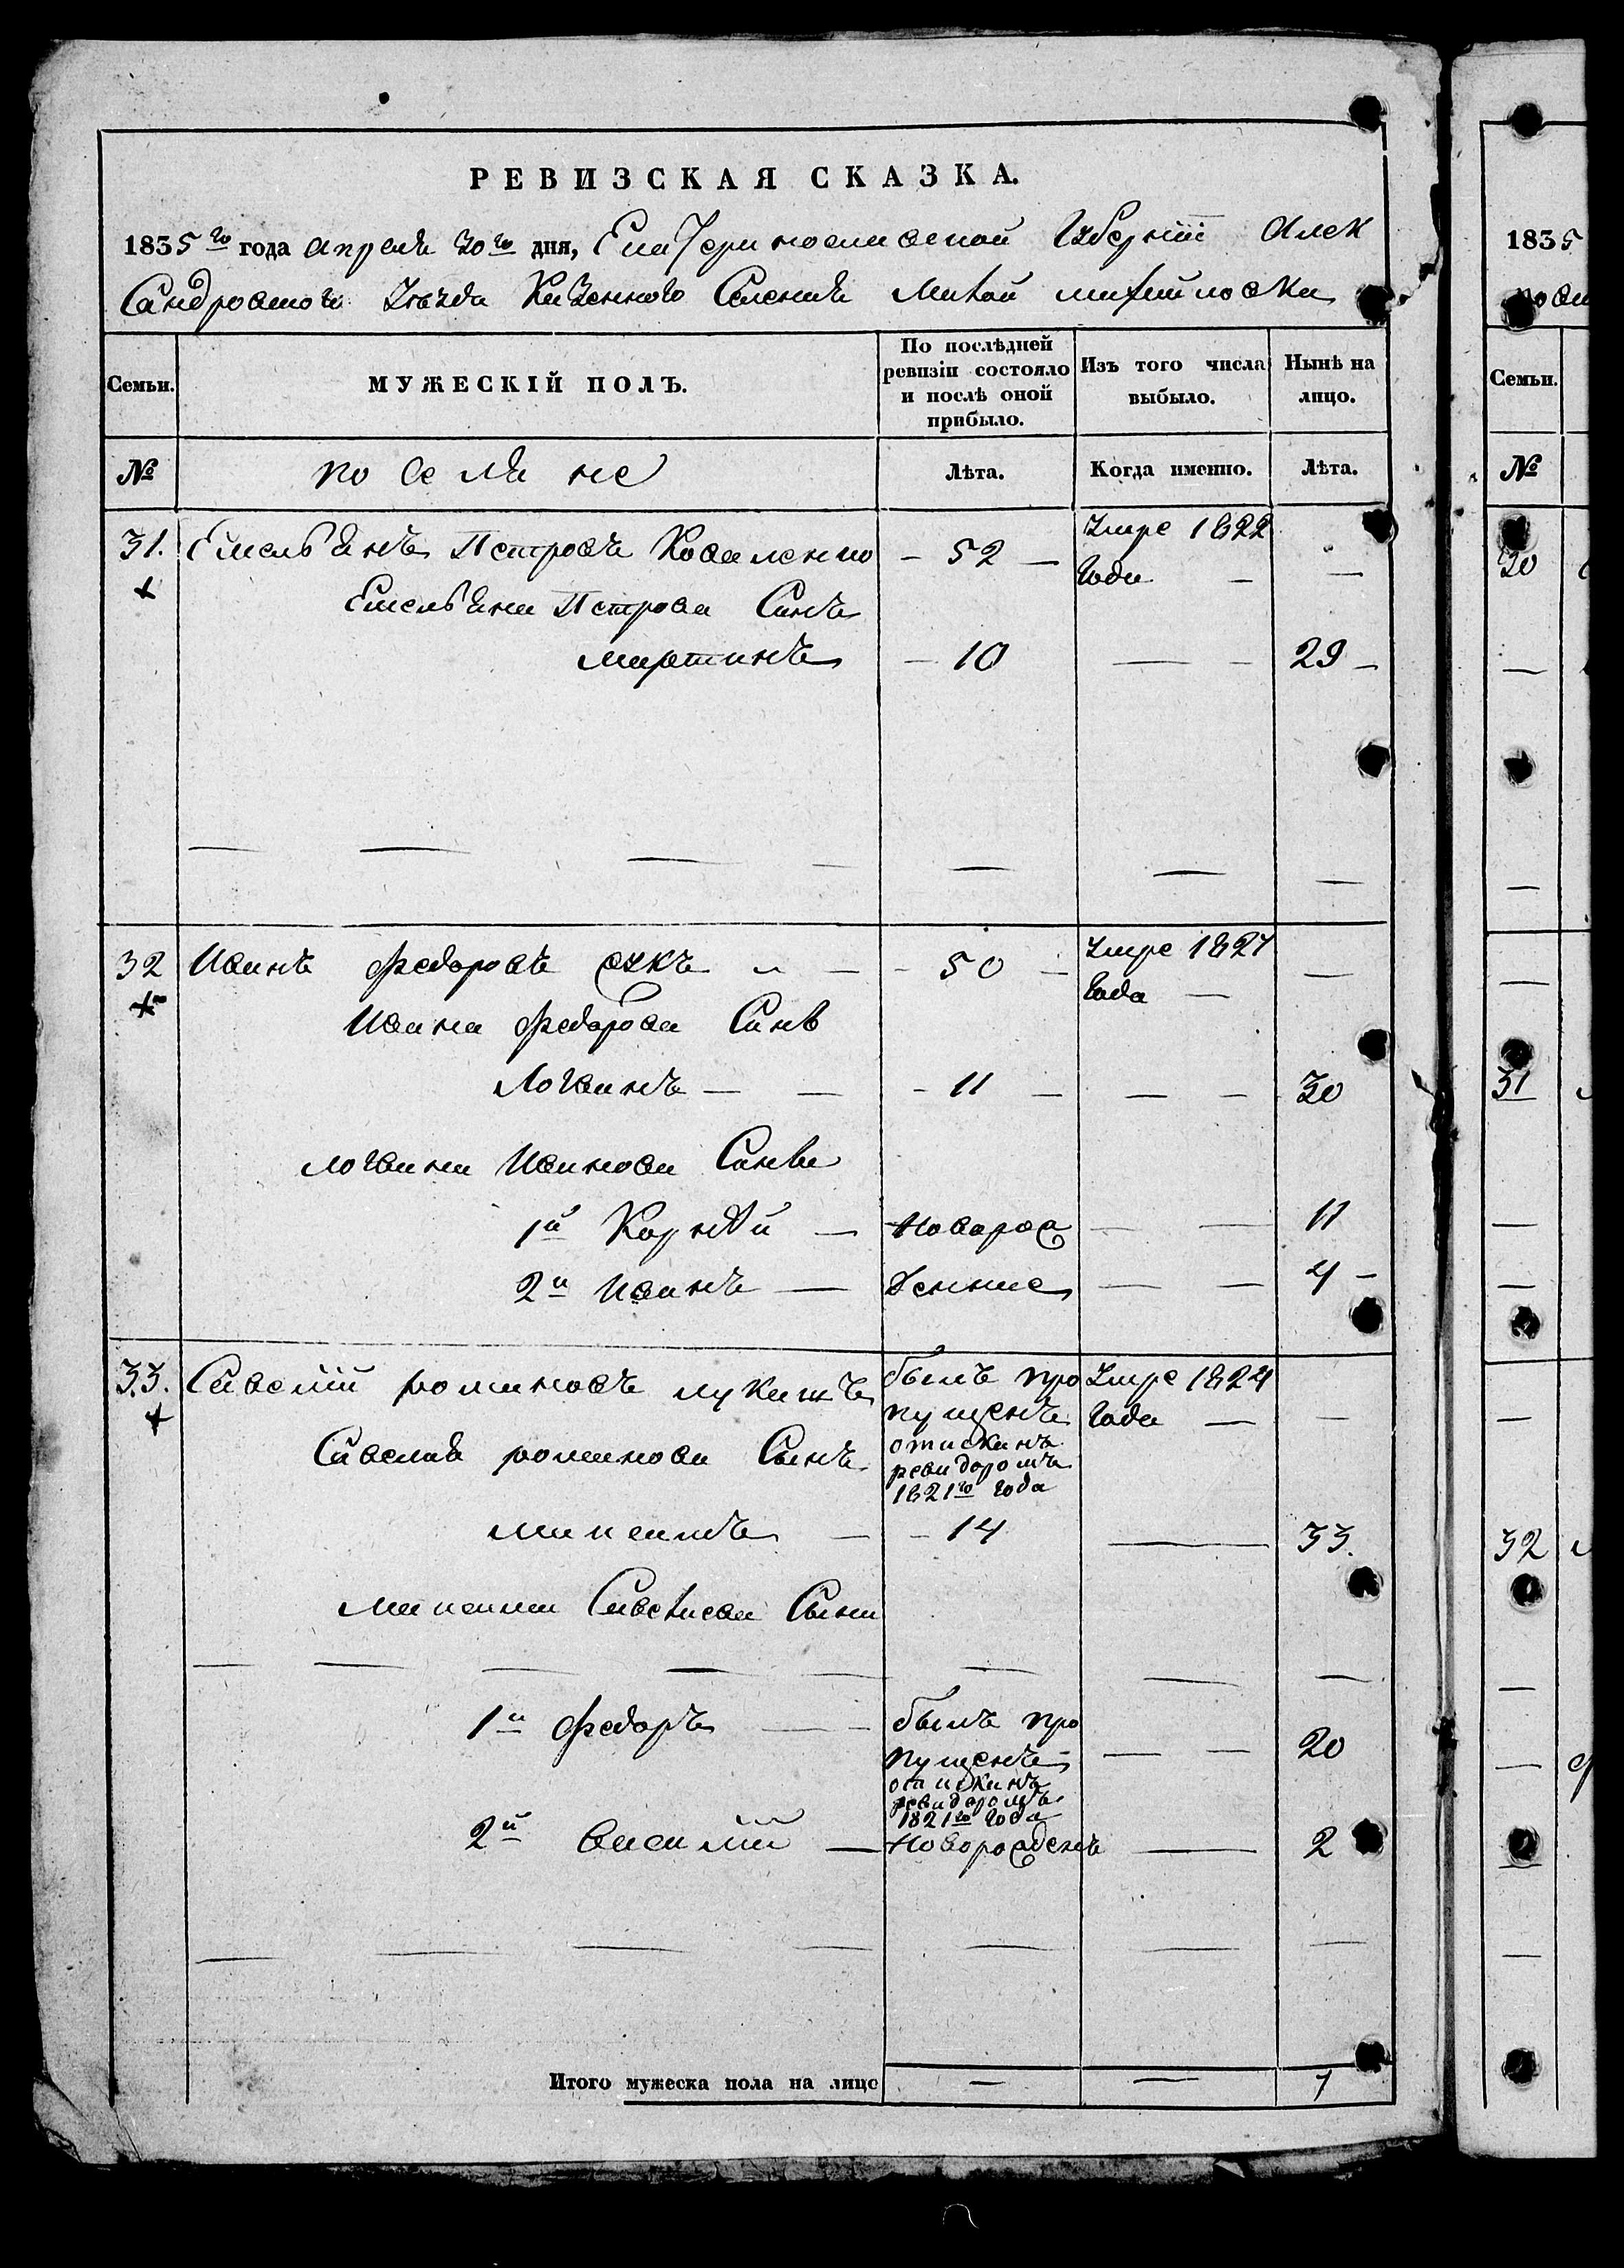 РЕВИЗСКАЯ СКАЗКА.
1835го года апреля 30го дня, Екатеринославской Губернiи Алек
сандровского Уѣзда Казенного Селения Малой михайловки
Семьи.
МУЖЕСКIЙ ПОЛЪ.
По послѣдней ревизiи состояло и послѣ оной прибыло.
Изъ того числа выбыло.
Нынѣ на лицо.
№
поселяне
Лѣта.
Когда именно.
Лѣта.
31. Емельянъ Петровъ Коваленко — 52 — Умре 1822 —
года —
Емельяна Петрова Сынъ
мартынъ — 10 — — 29 —
32 Иванъ федоровъ — — 50 — Умре 1827 —
года —
Ивана федорова Сынъ
Логвинъ — — — 11 — — — 30
логвина Иванова Сынви
1й Корнѣй — Новорож — — 11
2й Иванъ — денные — — 4 —
33. Савелiй романовъ лукашъ былъ про Умре 1824
пущенъ года — —
Савелия романова Сынъ отисканъ
ревизоромъ
1821го года
— — 14 — 33.
Савелиева Сыни
1й федоръ — — былъ про
пущенъ — — — 20
отисканъ
ревизоромъ
1821го года
2й василiй — Новорожденъ — 2
Итого мужеска пола на лицо — — 7
1835
Семьи.
№
30
31
32